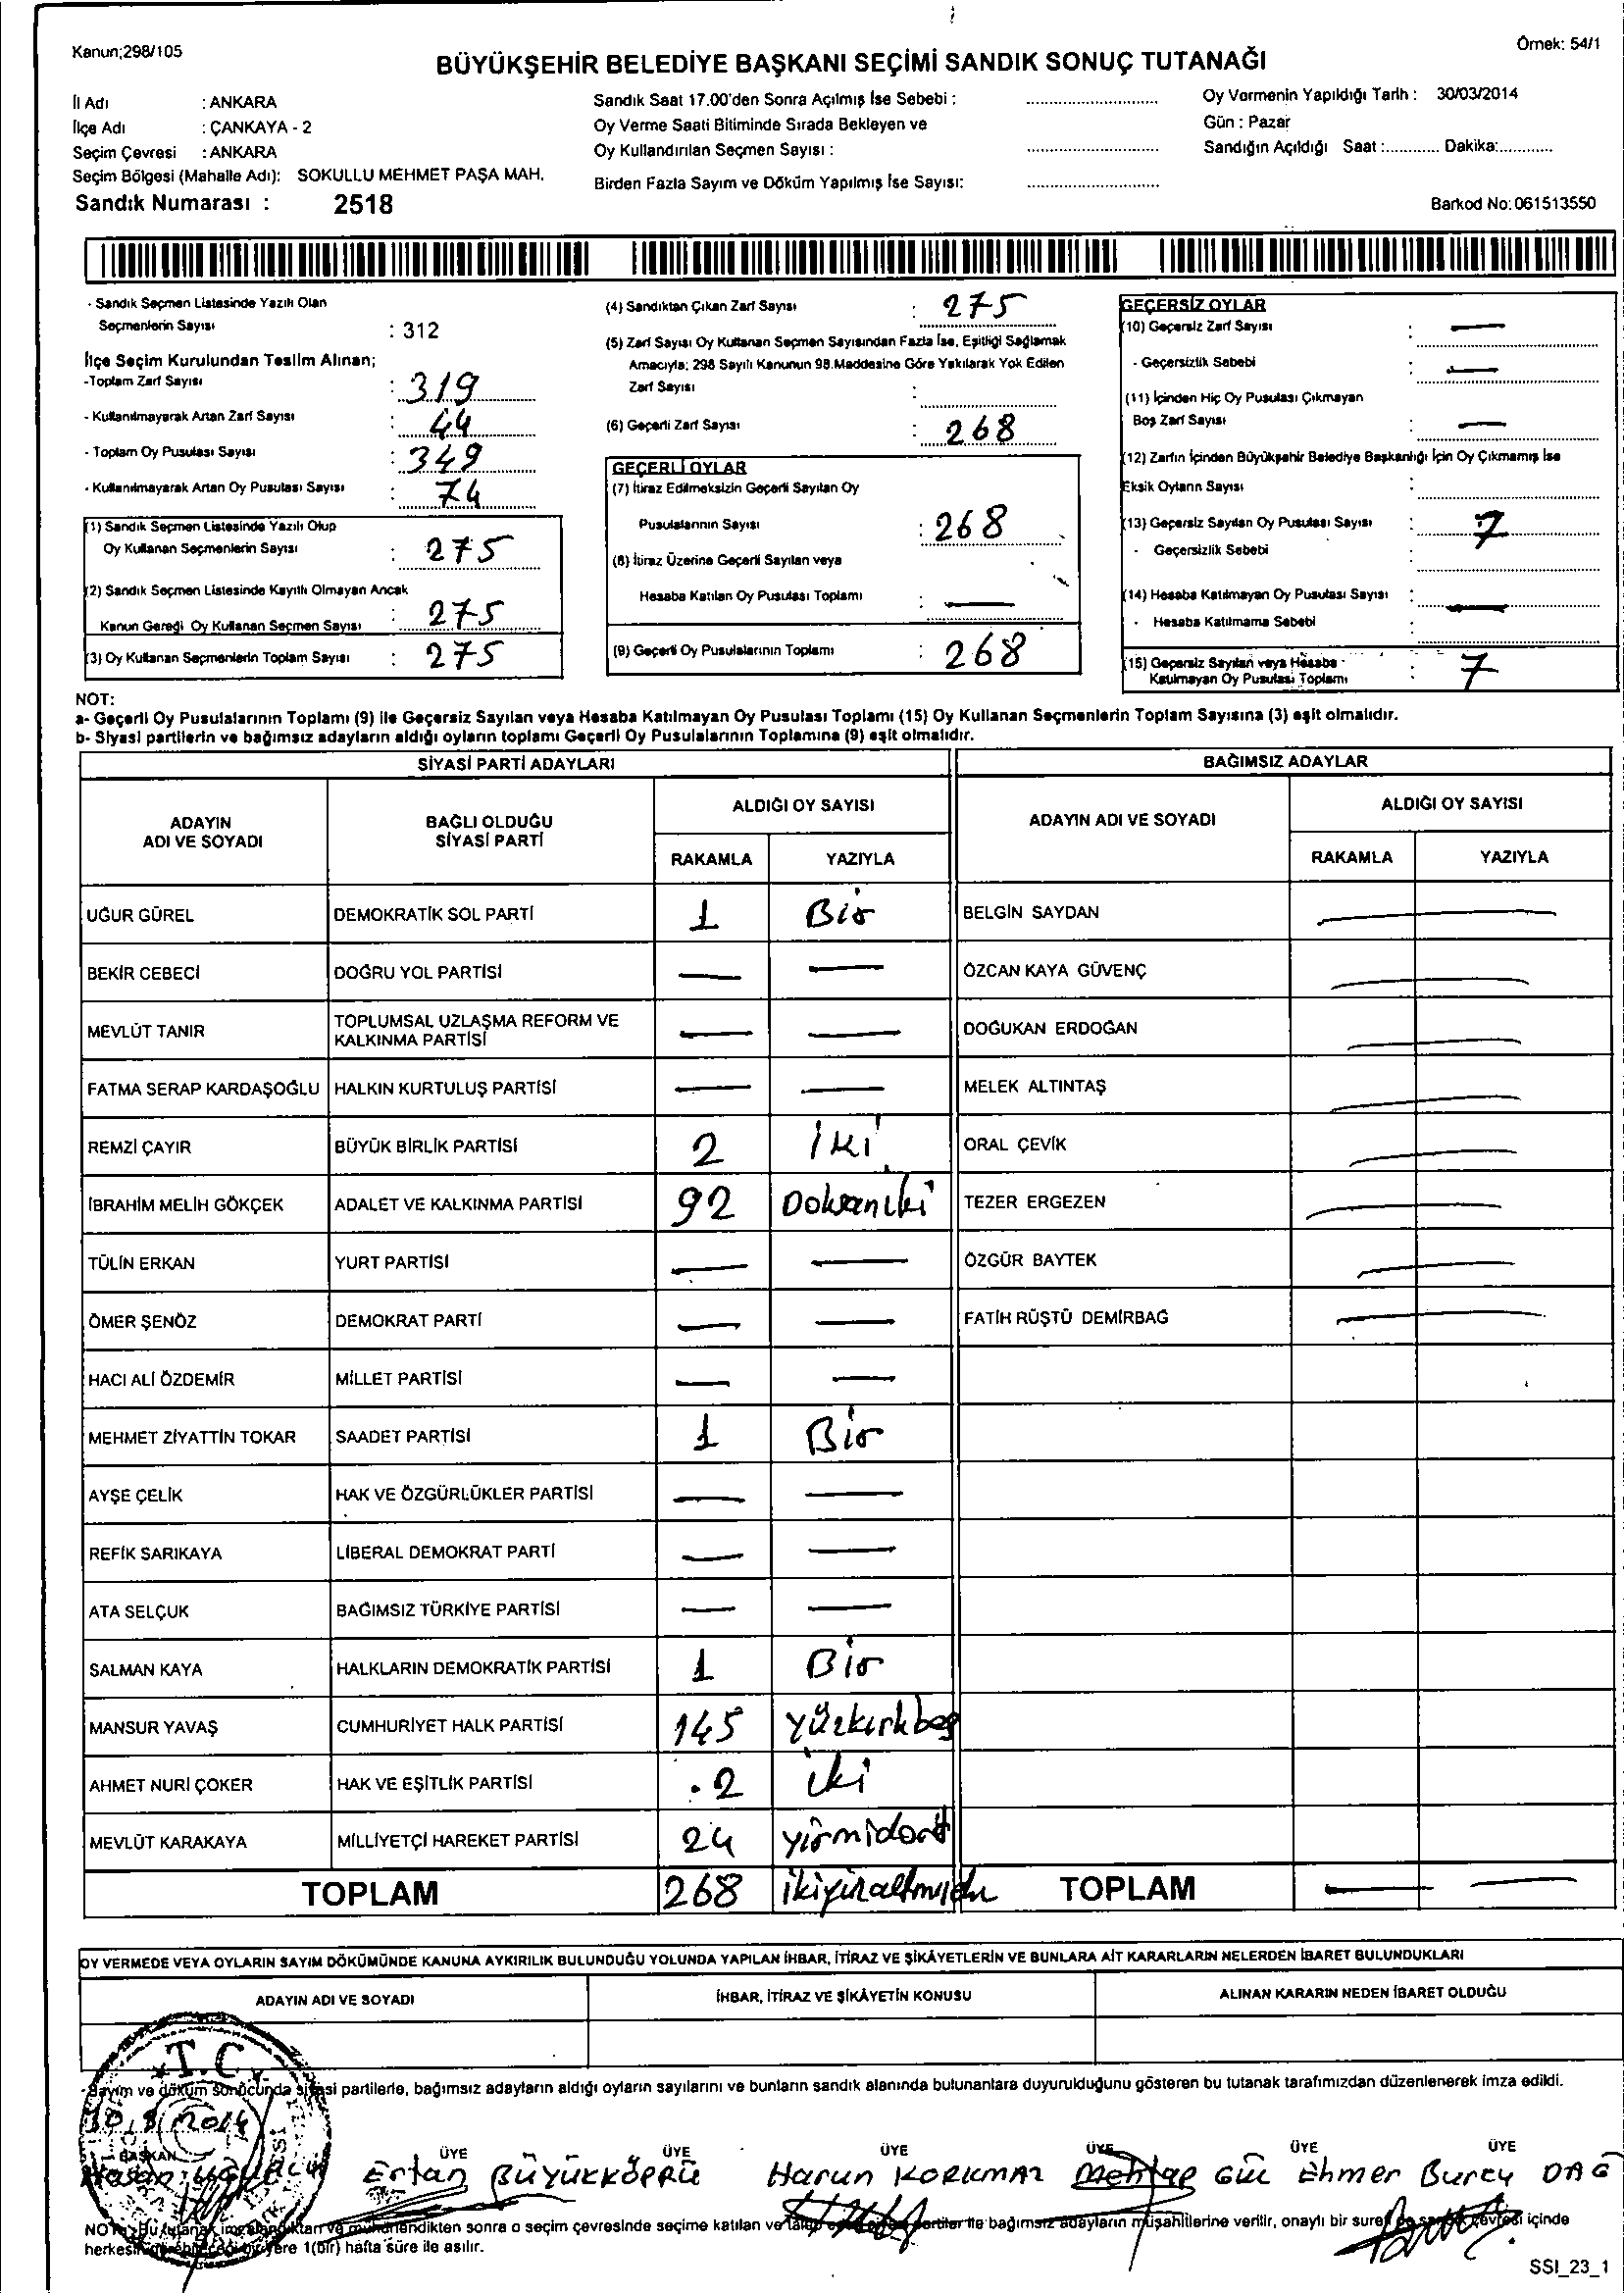 Kanun;298/105
Örnek: 54/1
BÜYÜKŞEHİR BELEDİYE BAŞKANI SEÇİMİ SANDIK SONUÇ TUTANAĞI
İl Adı : ANKARA
İlçe Adı : ÇANKAYA - 2
Seçim Çevresi : ANKARA
Seçim Bölgesi (Mahalle Adı): SOKULLU MEHMET PAŞA MAH.
Sandık Numarası : 2518
Sandık Saat 17.00'den Sonra Açılmış İse Sebebi :
Oy Verme Saati Bitiminde Sırada Bekleyen ve
Oy Kullandırılan Seçmen Sayısı :
Birden Fazla Sayım ve Döküm Yapılmış İse Sayısı:
Oy Vermenin Yapıldığı Tarih : 30/03/2014
Gün : Pazar
Sandığın Açıldığı Saat :............ Dakika:............
Barkod No: 061513550
- Sandık Seçmen Listesinde Yazılı Olan
Seçmenlerin Sayısı : 312
İlçe Seçim Kurulundan Teslim Alınan;
-Toplam Zarf Sayısı : 319
- Kullanılmayarak Artan Zarf Sayısı : 44
- Toplam Oy Pusulası Sayısı : 349
- Kullanılmayarak Artan Oy Pusulası Sayısı : 74
(1) Sandık Seçmen Listesinde Yazılı Olup
Oy Kullanan Seçmenlerin Sayısı : 275
(2) Sandık Seçmen Listesinde Kayıtlı Olmayan Ancak
Kanun Gereği Oy Kullanan Seçmen Sayısı : 275
(3) Oy Kullanan Seçmenlerin Toplam Sayısı : 275
(4) Sandıktan Çıkan Zarf Sayısı : 275
(5) Zarf Sayısı Oy Kullanan Seçmen Sayısından Fazla İse, Eşitliği Sağlamak
Amacıyla; 298 Sayılı Kanunun 98.Maddesine Göre Yakılarak Yok Edilen
Zarf Sayısı :
(6) Geçerli Zarf Sayısı : 268
GEÇERLİ OYLAR
(7) İtiraz Edilmeksizin Geçerli Sayılan Oy
Pusulalarının Sayısı : 268
(8) İtiraz Üzerine Geçerli Sayılan veya
Hesaba Katılan Oy Pusulası Toplamı : —
(9) Geçerli Oy Pusulalarının Toplamı : 268
GEÇERSİZ OYLAR
(10) Geçersiz Zarf Sayısı : —
- Geçersizlik Sebebi : —
(11) İçinden Hiç Oy Pusulası Çıkmayan
Boş Zarf Sayısı : —
(12) Zarfın İçinden Büyükşehir Belediye Başkanlığı İçin Oy Çıkmamış İse
Eksik Oyların Sayısı :
(13) Geçersiz Sayılan Oy Pusulası Sayısı : 7
- Geçersizlik Sebebi :
(14) Hesaba Katılmayan Oy Pusulası Sayısı : —
- Hesaba Katılmama Sebebi :
(15) Geçersiz Sayılan veya Hesaba
Katılmayan Oy Pusulası Toplamı : 7
NOT:
a- Geçerli Oy Pusulalarının Toplamı (9) ile Geçersiz Sayılan veya Hesaba Katılmayan Oy Pusulası Toplamı (15) Oy Kullanan Seçmenlerin Toplam Sayısına (3) eşit olmalıdır.
b- Siyasi partilerin ve bağımsız adayların aldığı oyların toplamı Geçerli Oy Pusulalarının Toplamına (9) eşit olmalıdır.
SİYASİ PARTİ ADAYLARI
ADAYIN ADI VE SOYADI BAĞLI OLDUĞU SİYASİ PARTİ ALDIĞI OY SAYISI
RAKAMLA YAZIYLA
UĞUR GÜREL DEMOKRATİK SOL PARTİ 1 Bir
BEKİR CEBECİ DOĞRU YOL PARTİSİ — —
MEVLÜT TANIR TOPLUMSAL UZLAŞMA REFORM VE KALKINMA PARTİSİ — —
FATMA SERAP KARDAŞOĞLU HALKIN KURTULUŞ PARTİSİ — —
REMZİ ÇAYIR BÜYÜK BİRLİK PARTİSİ 2 İki
İBRAHİM MELİH GÖKÇEK ADALET VE KALKINMA PARTİSİ 92 Doksaniki
TÜLİN ERKAN YURT PARTİSİ — —
ÖMER ŞENÖZ DEMOKRAT PARTİ — —
HACI ALİ ÖZDEMİR MİLLET PARTİSİ — —
MEHMET ZİYATTİN TOKAR SAADET PARTİSİ 1 Bir
AYŞE ÇELİK HAK VE ÖZGÜRLÜKLER PARTİSİ — —
REFİK SARIKAYA LİBERAL DEMOKRAT PARTİ — —
ATA SELÇUK BAĞIMSIZ TÜRKİYE PARTİSİ — —
SALMAN KAYA HALKLARIN DEMOKRATİK PARTİSİ 1 Bir
MANSUR YAVAŞ CUMHURİYET HALK PARTİSİ 145 yüzkırkbeş
AHMET NURİ ÇOKER HAK VE EŞİTLİK PARTİSİ 2 iki
MEVLÜT KARAKAYA MİLLİYETÇİ HAREKET PARTİSİ 24 yirmidört
TOPLAM 268
BAĞIMSIZ ADAYLAR
ADAYIN ADI VE SOYADI ALDIĞI OY SAYISI
RAKAMLA YAZIYLA
BELGİN SAYDAN —
ÖZCAN KAYA GÜVENÇ —
DOĞUKAN ERDOĞAN —
MELEK ALTINTAŞ —
ORAL ÇEVİK —
TEZER ERGEZEN —
ÖZGÜR BAYTEK —
FATİH RÜŞTÜ DEMİRBAĞ —
TOPLAM — —
OY VERMEDE VEYA OYLARIN SAYIM DÖKÜMÜNDE KANUNA AYKIRILIK BULUNDUĞU YOLUNDA YAPILAN İHBAR, İTİRAZ VE ŞİKÂYETLERİN VE BUNLARA AİT KARARLARIN NELERDEN İBARET BULUNDUKLARI
ADAYIN ADI VE SOYADI İHBAR, İTİRAZ VE ŞİKÂYETİN KONUSU ALINAN KARARIN NEDEN İBARET OLDUĞU
T.C.
Sayım ve döküm sonucunda siyasi partilerle, bağımsız adayların aldığı oyların sayılarını ve bunların sandık alanında bulunanlara duyurulduğunu gösteren bu tutanak tarafımızdan düzenlenerek imza edildi.
2014
BAŞKAN ÜYE ÜYE ÜYE ÜYE ÜYE ÜYE
Hasan Ertan BÜYÜKKÖPRÜ Harun KORKMAZ Mehtap GÜL Ehmer Burcy DAĞ
NOT: Bu tutanak imzalandıktan ve mühürlendikten sonra o seçim çevresinde seçime katılan ve talep partiler ile bağımsız adayların müşahitlerine verilir, onaylı bir sureti çevresi içinde
herkesin 1(bir) hafta süre ile asılır.
SSI_23_1